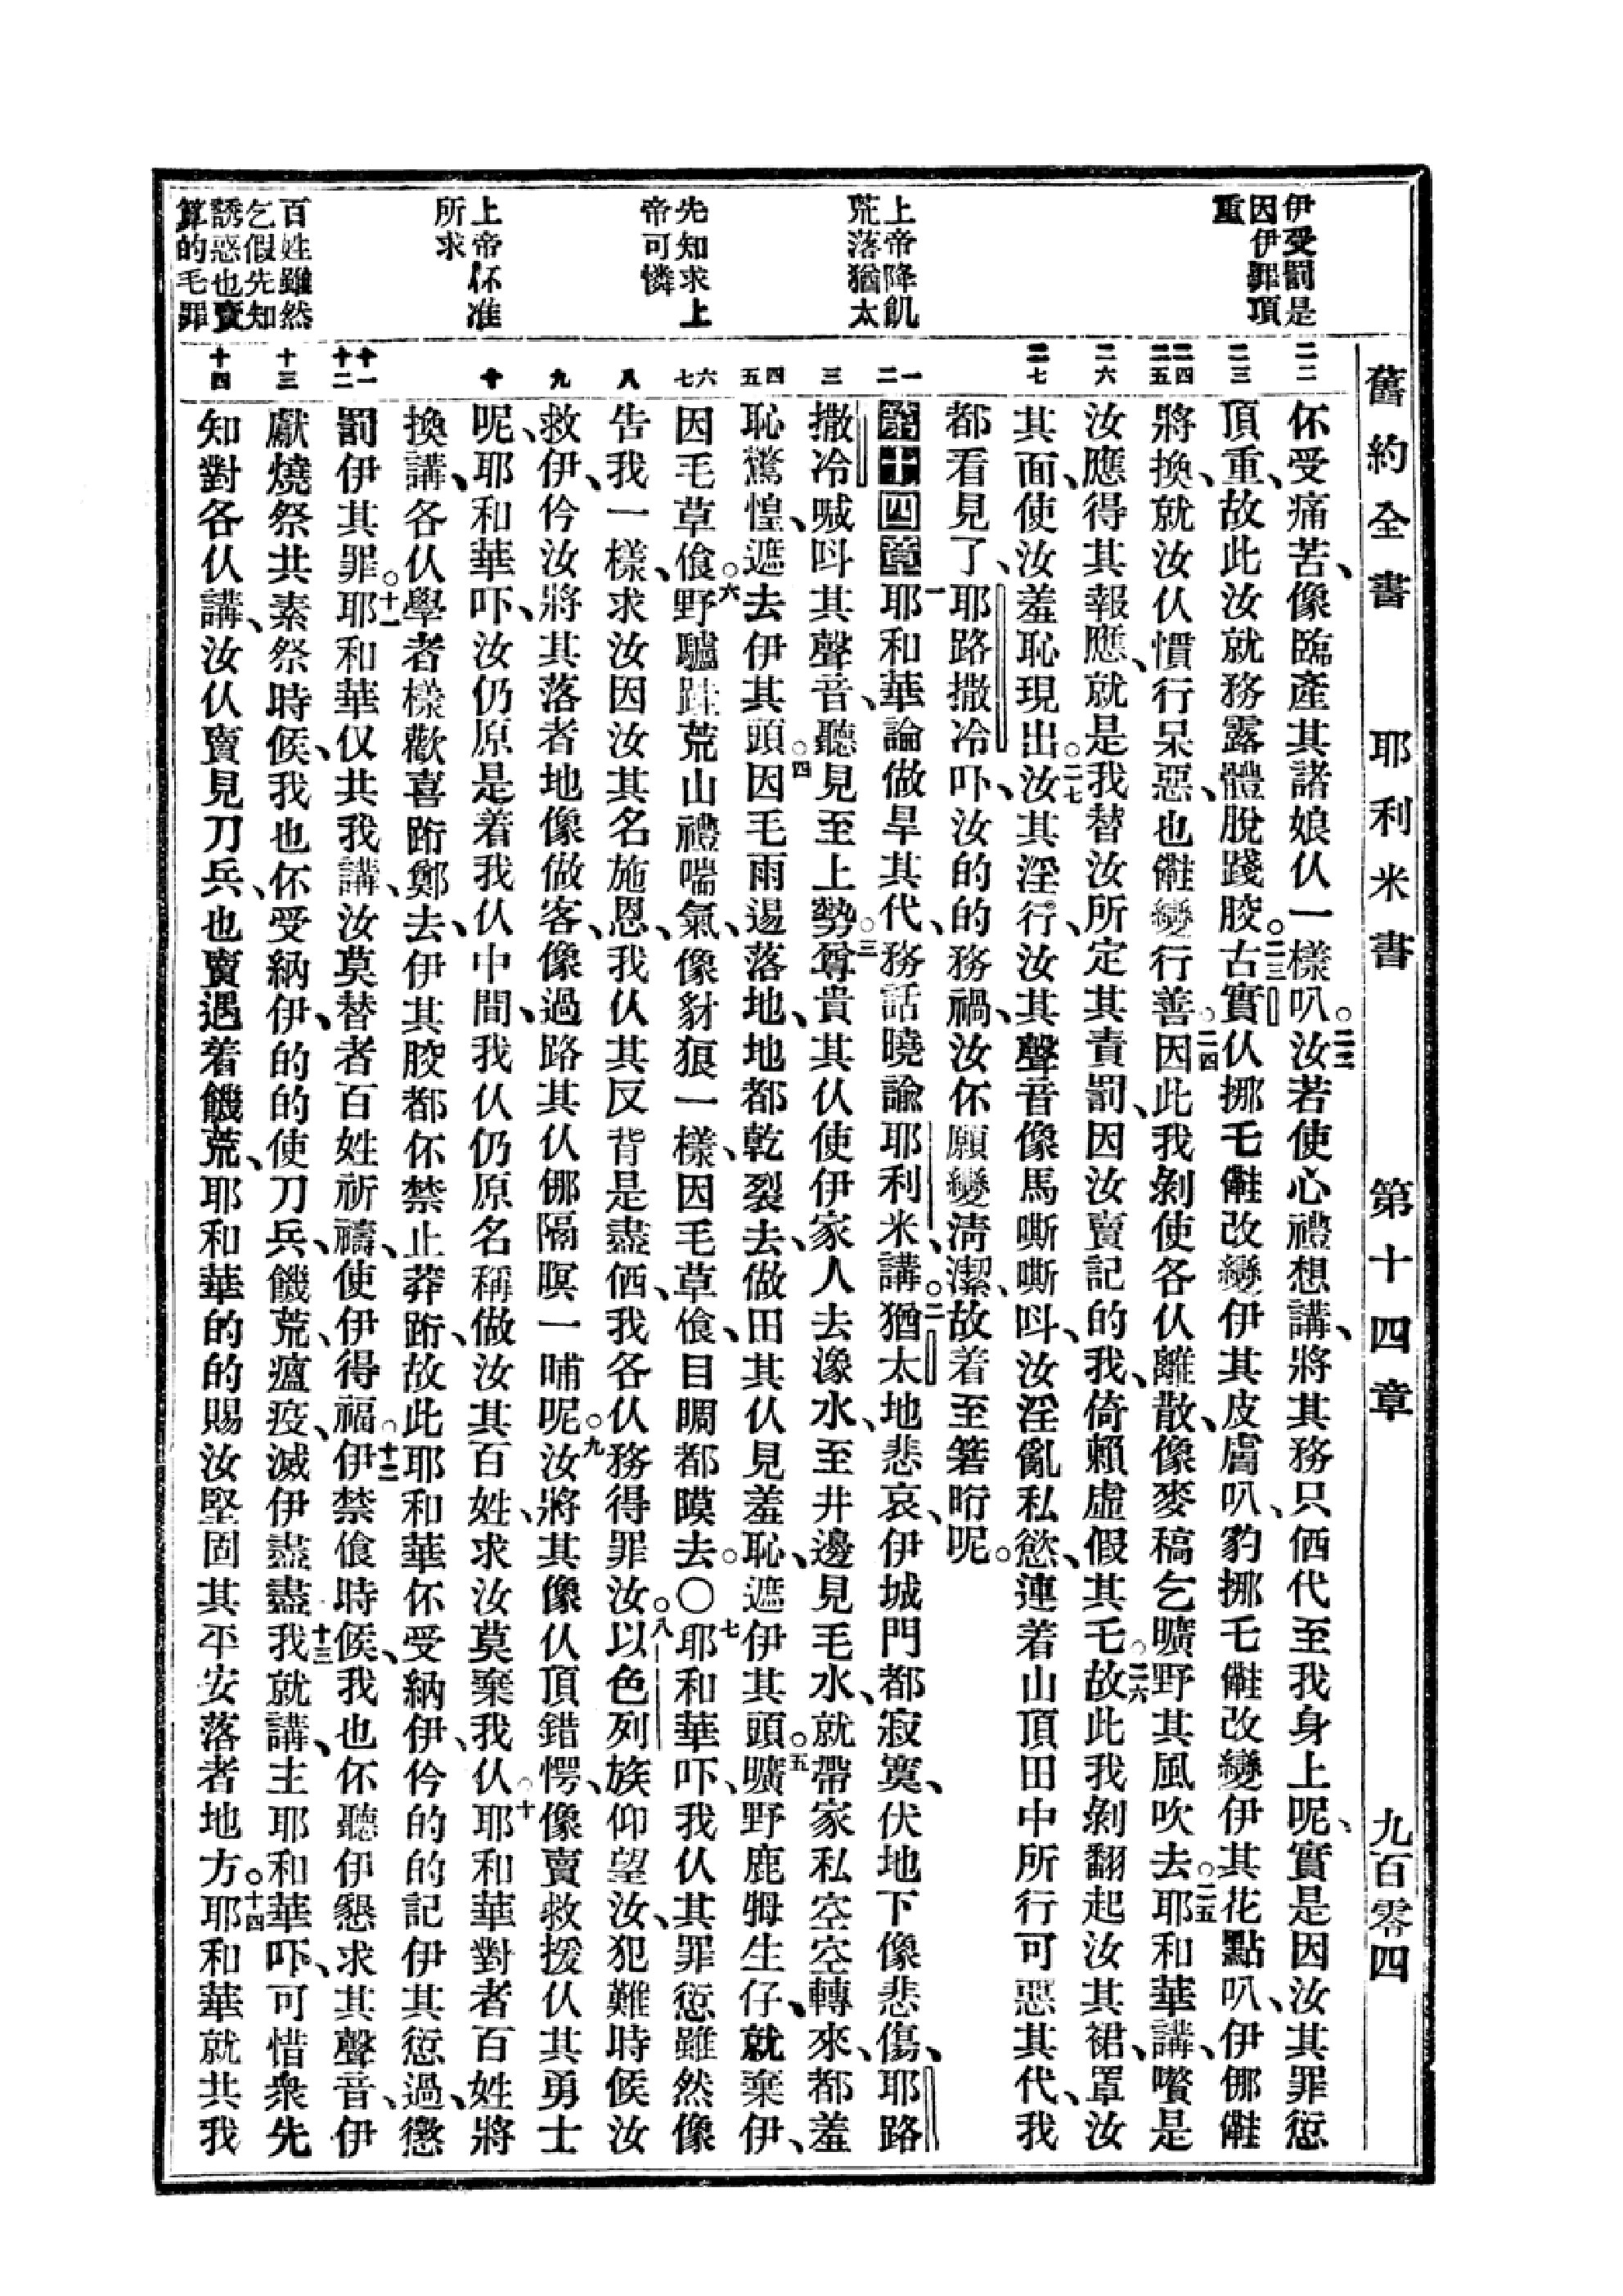 舊約全書 耶利米書 第十四章 九百零四
伊受罰是
因伊罪項
重
上帝降飢
荒落猶太
先知求上
帝可憐
上帝伓准
所求
百姓雖然
乞假先知
誘惑也賣
算的毛罪
二二
二三
二四
二五
二六
二七
一
二
三
四
五
六
七
八
九
十
十一
十二
十三
十四
伓受痛苦、像臨產其諸娘仈一樣叭。二二汝若使心禮想講、將其務只価代至我身上呢、實是因汝其罪愆
頂重、故此汝就務露體脫踐骹。二三古實仈挪毛儺改變伊其皮膚叭、豹挪毛儺改變伊其花點叭、伊挪儺
將換、就汝仈慣行呆惡、也儺變行善。二四因此我剝使各仈離散、像麥稿乞曠野其風吹去。二五耶和華講、嚽是
汝應得其報應、就是我替汝所定其責罰、因汝賣記的我、倚賴虛假其乇。二六故此我剝翻起汝其裙、罩汝
其面、使汝羞恥現出。二七汝其淫行、汝其聲音像馬嘶嘶呌、汝淫亂私慾、連着山頂田中所行可惡其代、我
都看見了、耶路撒冷吓、汝的的務禍、汝伓願變清潔、故着至箬晘呢。
第十四章一耶和華論做旱其代、務話曉諭耶利米講、二猶太地悲哀、伊城門都寂寞、伏地下像悲傷、耶路
撒冷喊呌其聲音、聽見至上勢。三尊貴其仈使伊家人去潒水、至井邊見毛水、就帶家私空空轉來、都羞
恥驚惶、遮去伊其頭。四因毛雨逿落地、地都乾裂去、做田其仈見羞恥、遮伊其頭。五曠野鹿牳生仔、就棄伊、
因毛草偹。六野驢跓荒山禮喘氣、像豺狼一樣、因毛草偹、目睭都瞙去。〇七耶和華吓、我仈其罪愆雖然像
告我一樣、求汝因汝其名施恩、我仈其反背是盡価、我各仈務得罪汝。八以色列族仰望汝、犯難時候汝
救伊、伶汝將其落者地像做客、像過路其仈挪隔暝一晡呢。九汝將其像仈頂錯愕、像賣救援仈其勇士
呢、耶和華吓、汝仍原是着我仈中間、我仈仍原名稱做汝其百姓、求汝莫棄我仈。十耶和華對者百姓將
換講、各仈學者樣歡喜跲鄭去、伊其骹都伓禁止莽跲、故此耶和華伓受納伊、伶的的記伊其愆過、懲
罰伊其罪。十一耶和華仅共我講、汝莫替者百姓祈禱、使伊得福。十二伊禁偹時候、我也伓聽伊懇求其聲音、伊
獻燒祭共素祭時候、我也伓受納伊、的的使刀兵、饑荒、瘟疫、滅伊盡盡。十三我就講、主耶和華吓、可惜衆先
知對各仈講、汝仈賣見刀兵、也賣遇着饑荒、耶和華的的賜汝堅固其平安落者地方。十四耶和華就共我